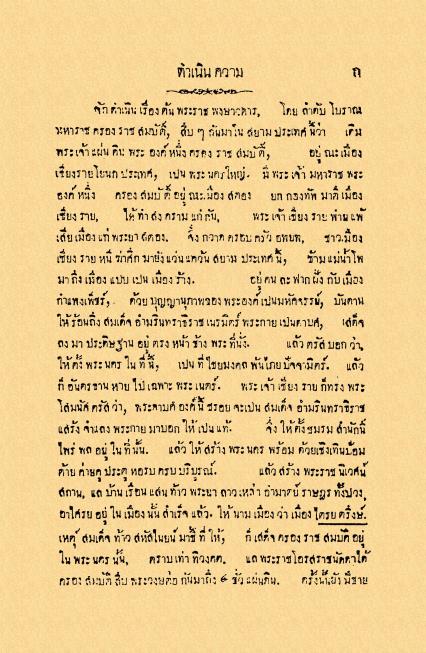 ดำเนิน ความ ฤ
จัก ดำเนิน เรื่อง ต้น พระราช พงษาวดาร, โดย ลำดับ โบราณ
มหาราช ครอง ราช สมบัติ, สืบ ๆ กันมาใน สยาม ประเทศ นี้ว่า เดิม
พระเจ้า แผ่น ดิน พระ องค์ หนึ่ง ครอง ราช สมบัติ์, อยู่ ณะเมือง
เชียงรายโยนก ประเทศ, เปน พระ นครใหญ่. มี พระ เจ้า มหาราช พระ
องค์ หนึ่ง ครอง สมบัติ อยู่ ณะเมือง สตอง ยก กองทัพ มาตี เมือง
เชียง ราย, ให้ ทำ สงคราม แก่ กัน, พระ เจ้า เชียง ราย พ่าย แพ้
เสีย เมือง แก่ พระยา สตอง. จึ่ง กวาด ครอบ ครัว อพยพ, ชาว เมือง
เชียง ราย หนี ข้าศึก มายัง แว่น แคว้น สยาม ประเทศ นี้, ข้าม แม่น้ำ โพ
มา ถึง เมือง แปบ เปน เมือง ร้าง. อยู่ คน ละ ฟาก ฝั่ง กับ เมือง
กำแพงเพ็ชร์, ด้วย บุญญานุภาพของ พระองค์ เปนมหัศจรรย์, บันดาน
ให้ ร้อนถึง สมเด็จ อำมรินทราธิราช เนรมิตร์ พระกาย เปนดาบศ, เสด็จ
ลง มา ประดิษฐาน อยู่ ตรง หน้า ช้าง พระ ที่นั่ง. แล้ว ตรัส บอก ว่า,
ให้ ตั้ง พระ นคร ใน ที่ นี้, เปน ที่ ไชยมงคล พ้นไภย ปัจจามิตร์. แล้ว
ก็ อันตรธาน หาย ไป เฉพาะ พระ เนตร์. พระ เจ้า เชียง ราย ก็ทรง พระ
โสมนัศ ตรัส ว่า, พระดาบศ องค์ นี้ ชรอย จะเปน สมเด็จ อำมรินทราธิราช
แสร้ง จำแลง พระกาย มาบอก ให้ เปน แท้. จึ่ง ให้ ตั้ง ชมรม สำนักนิ์
ไพร่ พล อยู่ ใน ที่ นั้น. แล้ว ให้ สร้าง พระ นคร พร้อม ด้วยเชิงเทินป้อม
ค่าย คูประตู หอรบ ครบ บริบูรณ์. แล้ว สร้าง พระราช นิเวศน์
สถาน, แล บ้าน เรือน แสน ท้าว พระยา ลาว เหล่า อำมาตย์ ราษฎร ทั้งปวง,
อาไศรย อยู่ ใน เมือง นั้น สำเร็จ แล้ว. ให้ นาม เมือง ว่า เมือง ไตรย ตรึงษ์.
เหตุ สมเด็จ ท้าว สหัสไนยน์ มาชี้ ที่ ให้, ก็ เสด็จ ครอง ราช สมบัติ อยู่
ใน พระ นคร นั้น, ตราบ เท่า ทิวงคต. แล พระราชโอรสราชนัดดาได้
ครอง สมบัติ สืบ พระวงษต่อ กันมาถึง ๔ ชั่ว แผ่นดิน. ครั้งนั้นยัง มีชาย